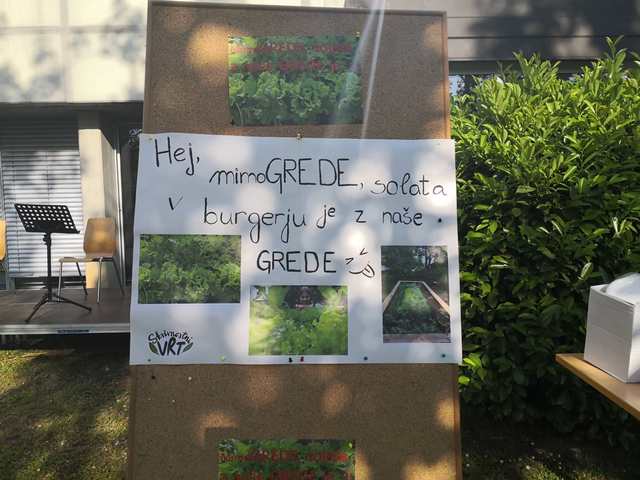 Hej,
mimoGREDE, solata
v burgerju je z naše
GREDE
VRT